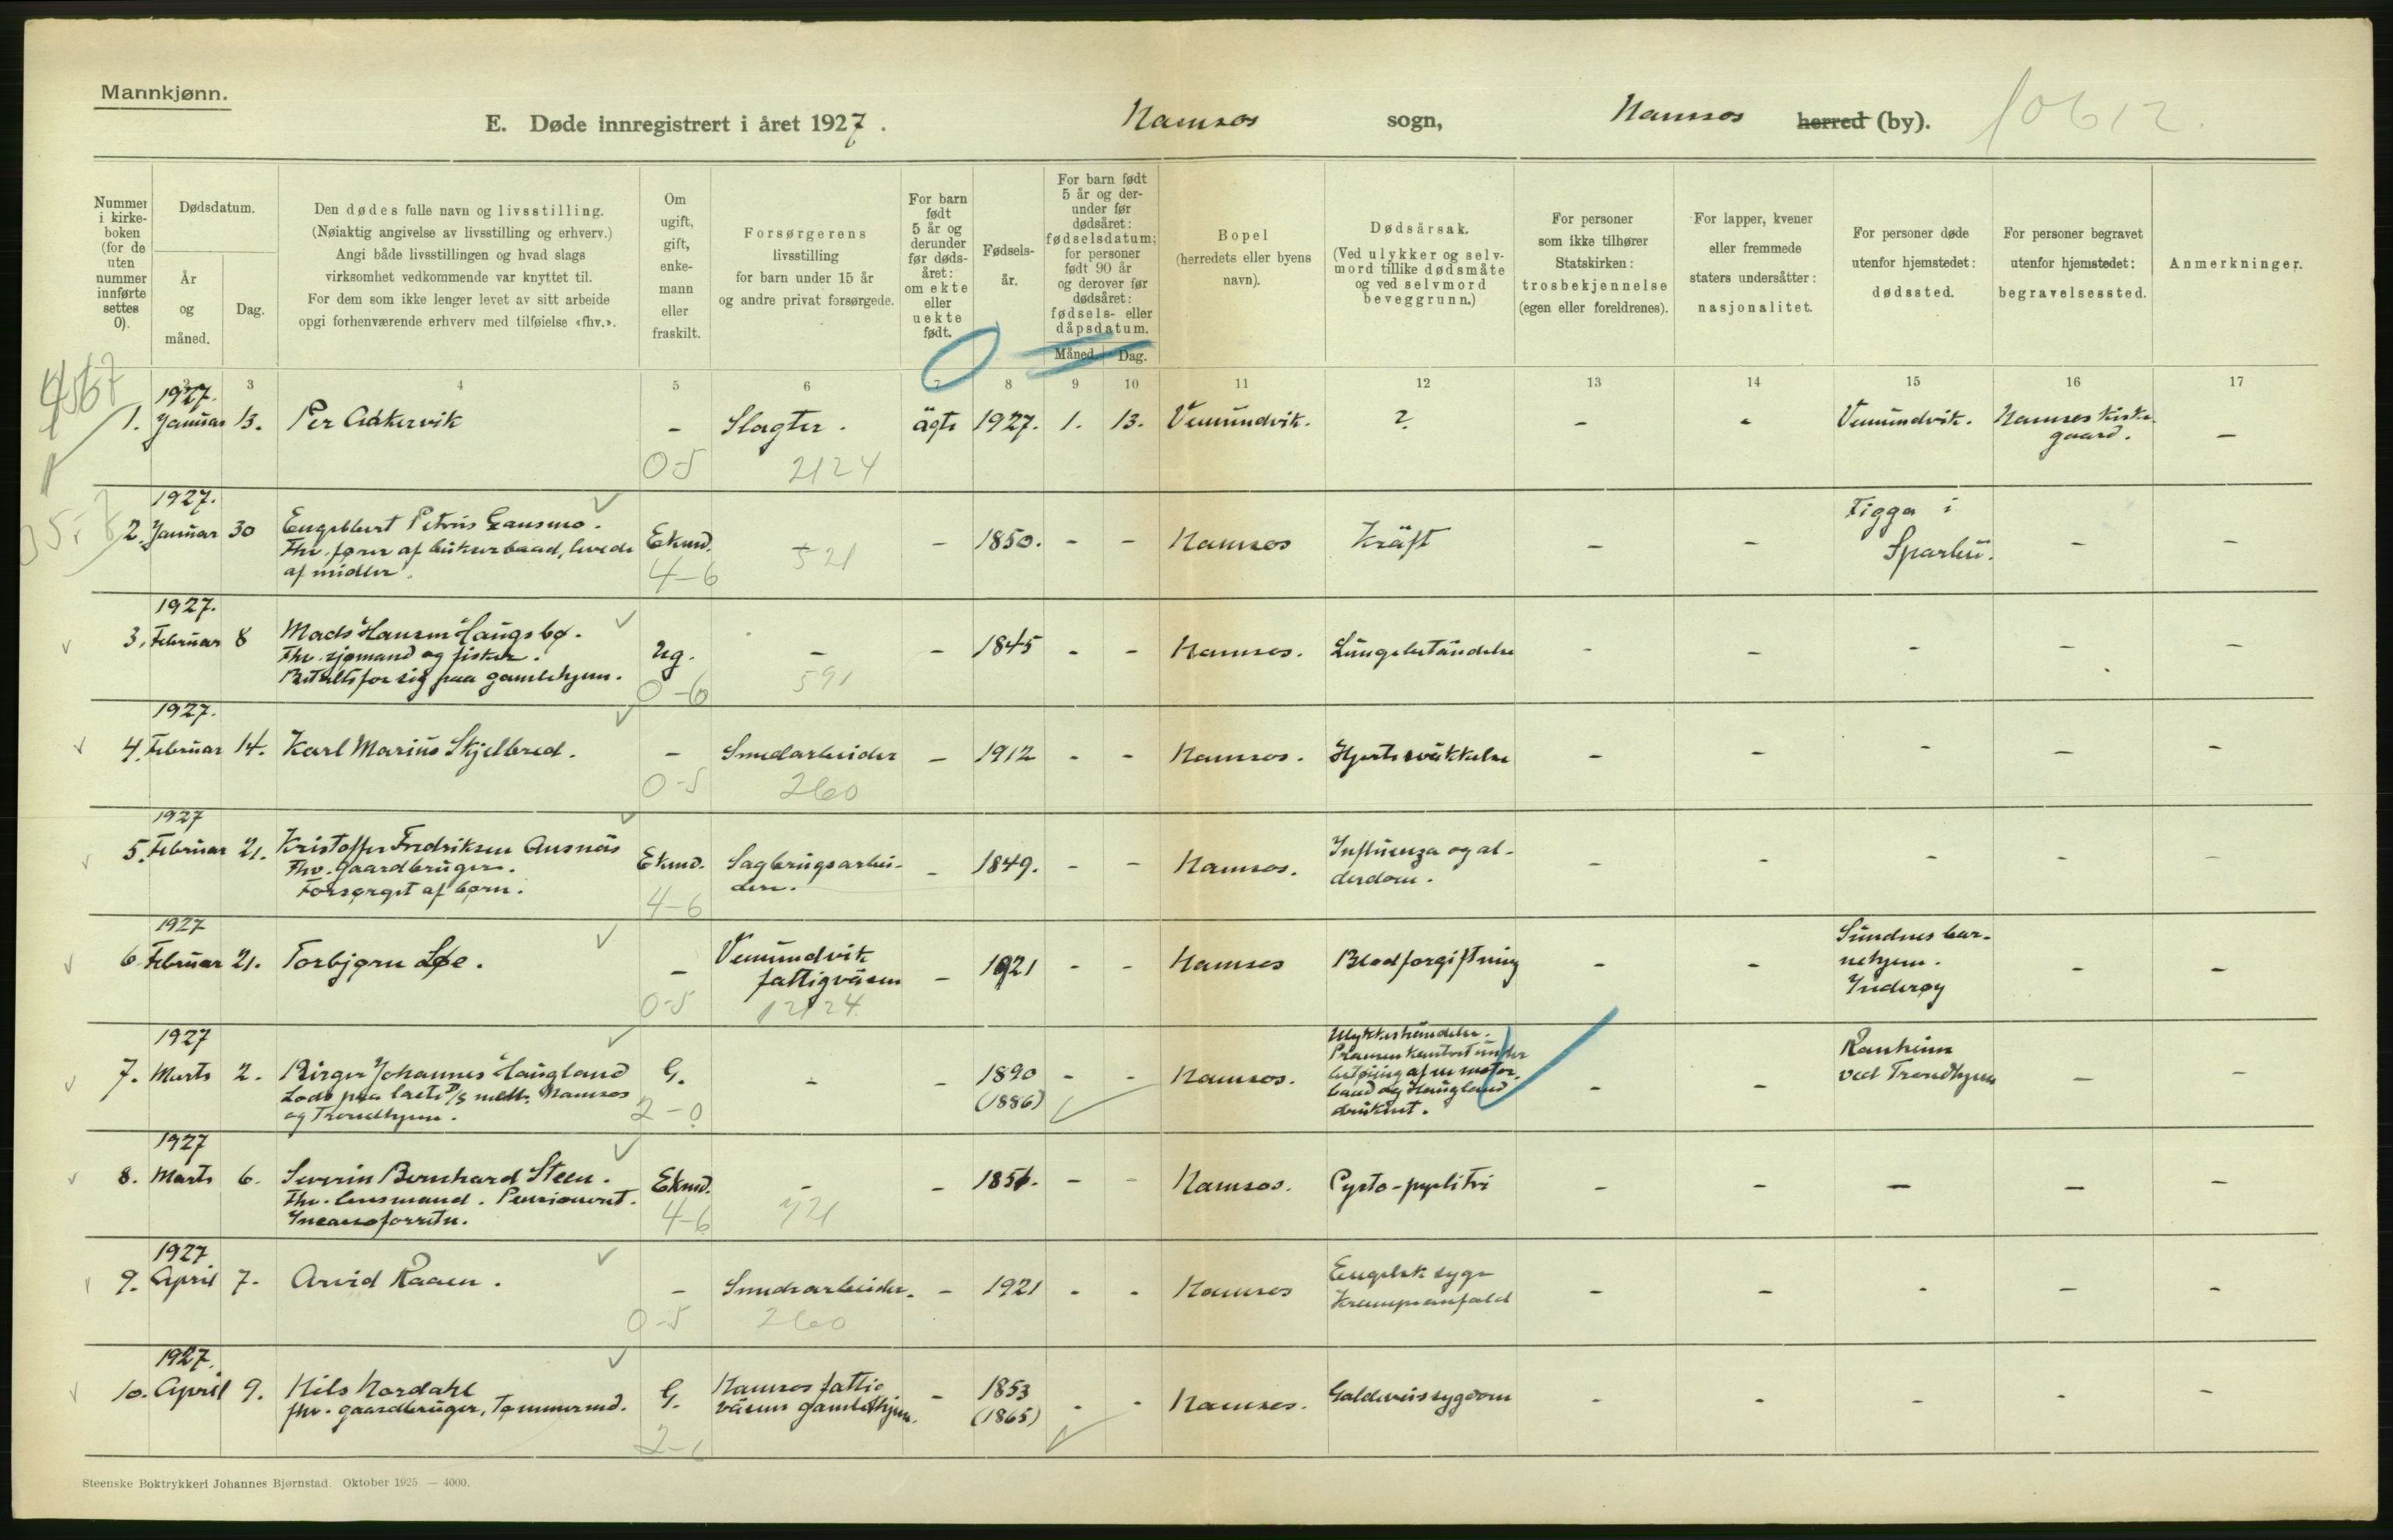 Mannkjønn.
E. Døde innregistrert i året 1927. Namsos sogn, Namsos herred (by). 10612.
Nummer i kirke-boken (for de uten nummer innførte settes 0).
Dødsdatum.
År og måned.
Dag.
Den dødes fulle navn og livsstilling.
(Nøiaktig angivelse av livsstilling og erhverv.)
Angi både livsstillingen og hvad slags
virksomhet vedkommende var knyttet til.
For dem som ikke lenger levet av sitt arbeide
opgi forhenværende erhverv med tilføielse «fhv.».
Om ugift, gift, enke-mann eller fraskilt.
Forsørgerens
livsstilling
for barn under 15 år
og andre privat forsørgede.
For barn født 5 år og derunder før døds-året: om ekte eller uekte født.
Fødsels-år.
For barn født 5 år og der-under før dødsåret: fødselsdatum; for personer født 90 år og derover før dødsåret: fødsels- eller dåpsdatum.
Måned. Dag.
Bopel
(herredets eller byens
navn).
Dødsårsak.
(Ved ulykker og selv-
mord tillike dødsmåte
og ved selvmord
beveggrunn.)
For personer
som ikke tilhører
Statskirken:
trosbekjennelse
(egen eller foreldrenes).
For lapper, kvener
eller fremmede
staters undersåtter:
nasjonalitet.
For personer døde
utenfor hjemstedet:
dødssted.
For personer begravet
utenfor hjemstedet:
begravelsessted.
Anmerkninger.
3 4 5 6 7 8 9 10 11 12 13 14 15 16 17
1927.
1. Januar 13. Per Aakervik - Slagter. ägte 1927. 1. 13. Vemundvik. ? - - Vemundvik. Namsos kirke-
gaard. -
0-5 2124
1927.
2. Januar 30 Engelbert Petrus Gansmo. Ekmd. - - 1850. - - Namsos Kräft - - Figga i
Sparbu. - -
Fhv. fører af bukserbaad, levede
af midler.
4-6 521
1927.
3. Februar 8 Mads Hansen Haugsbø. Ug. - - 1845 - - Namsos. Lungebetændelse - - - - -
Fhv. sjømand og fisker.
Betalte for sig paa gamlehjem.
0-6 591
1927.
4. Februar 14. Karl Marius Skjelbred. - Smedarbeider - 1912 - - Namsos. Hjertesvækkelse - - - - -
0-5 260
1927
5. Februar 21. Kristoffer Fredriksen Ausnäs Ekmd. Sagbrugsarbei-
dere. - 1849. - - Namsos. Influenza og al-
derdom. - - - - -
Fhv. Gaardbruger.
Forsørget af børn.
4-6
1927
6. Februar 21. Torbjørn Løe. - Vemundvik
fattigväsen - 1921 - - Namsos Blodforgiftning - - Sundnes bar-
nehjem.
Inderøy - -
0-5 12124
1927
7. Marts 2. Birger Johannes Haugland G. - - 1890
(1886) - - Namsos. Ulykkeshändelse.
Pramen kantret under
af en motor-
baad og Haugland
druknet. - - Ranheim
ved Trondhjem - -
Lods paa laste D/S mell. Namsos
og Trondhjem.
2-0
1927
8. Marts 6. Severin Bernhard Steen. Ekmd. - - 1851. - - Namsos. - - - - -
Fhv. lensmand. Pensioneret.
4-6 721
1927
9. April 7. Arvid Raaen. - Smedarbeider. - 1921 - - Namsos Engelsk syge
Krampeanfald - - - - -
0-5 260
1927.
10. April 9. Nils Nordahl G. Namsos fattig
väsens gamlehjem. - 1853
(1865) - - Namsos. Galdeveissygdom - - - - -
fhv. gaardbruger, Tømmermd.
Steenske Boktrykkeri Johannes Bjørnstad. Oktober 1925. — 4000.